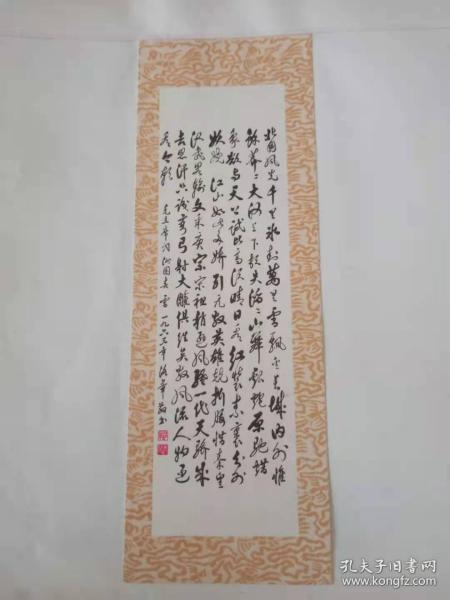 北國風光千里冰封萬里雪飄望長城内外惟
餘莽二大河上下頓失滔二山舞銀蛇原馳蜡
象欲与天公試比高須晴日看紅裝素裹分外
妖嬈 江山如此多嬌引无数英雄競折腰惜秦皇
汉武略輸文采唐宗宋祖稍遜風騷一代天驕成
吉思汗只識弯弓射大雕俱往矣数風流人物还
看今朝 毛主席词沁園春 雪 一九六三年
孔夫子旧书网
www.kongfz.com